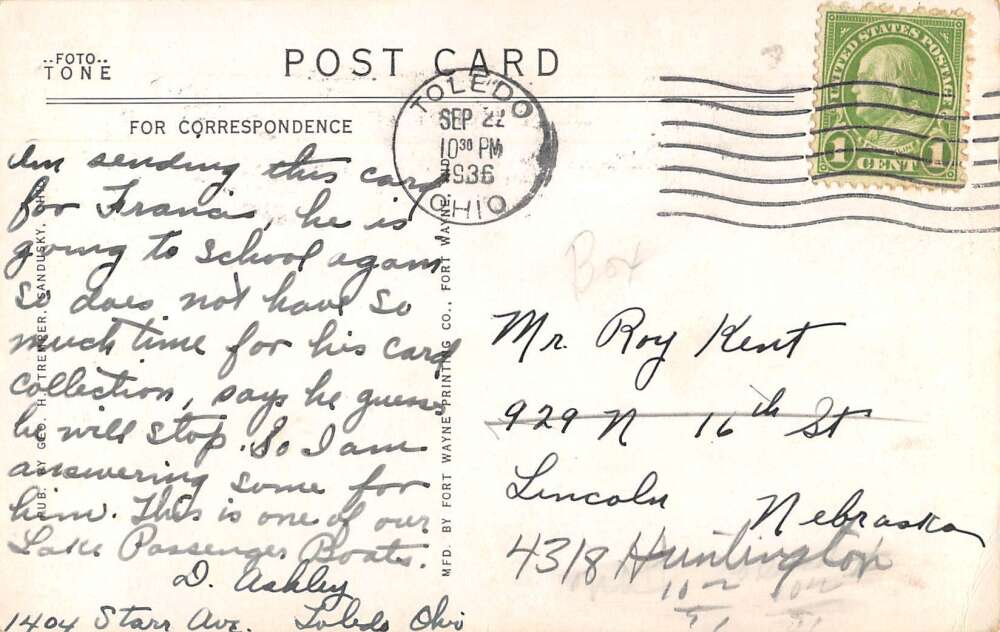 ..FOTO..
TONE
POST CARD
FOR CORRESPONDENCE
TOLEDO
SEP 22
10 30 PM
1936
OHIO
UNITED STATES POSTAGE
1 CENT 1
Am sending this card
for Francis, he is
going to school again
so does not have so
much time for his card
collection, says he guesses
he will stop. So I am
answering some for
him. This is one of our
Lake Passenger Boats.
D. Ashley
1404 Starr Ave. Toledo Ohio
PUB. BY GEO. H. TREHRER, SANDUSKY,
MFD. BY FORT WAYNE PRINTING CO., FORT WAYNE,
Box
Mr. Roy Kent
929 N 16th St
Lincoln Nebraska
4318 Huntington